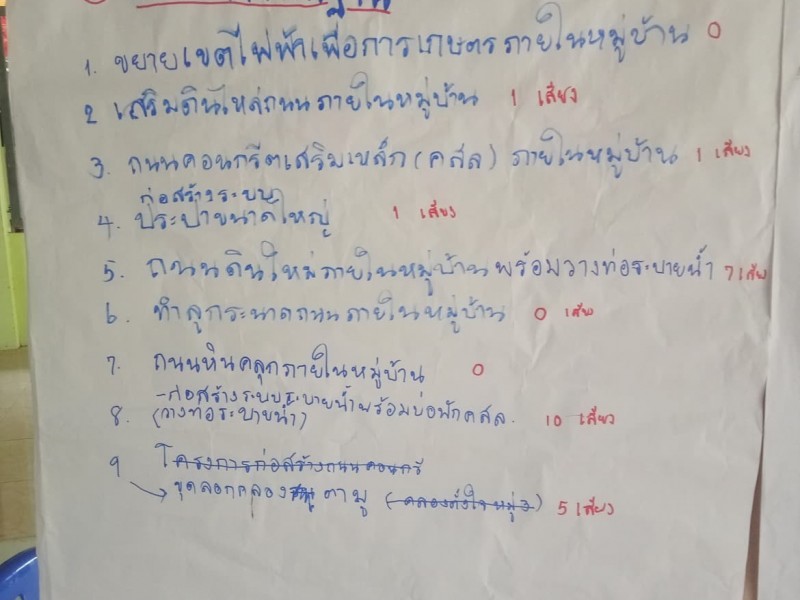 1. ขยายเขตไฟฟ้าเพื่อการเกษตรภายในหมู่บ้าน 0
2 เสริมดินไหล่ถนนภายในหมู่บ้าน 1 เสียง
3. ถนนคอนกรีตเสริมเหล็ก (คสล) ภายในหมู่บ้าน 1 เสียง
ก่อสร้างระบบ
4. ประปาขนาดใหญ่ 1 เสียง
5. ถนนดินใหม่ภายในหมู่บ้านพร้อมวางท่อระบายน้ำ 7 เสียง
6. ทำลูกระนาดถนนภายในหมู่บ้าน 0 เสียง
7. ถนนหินคลุกภายในหมู่บ้าน 0
-ก่อสร้างระบบระบายน้ำพร้อมบ่อพักคสล.
8. (วางท่อระบายน้ำ) 10 เสียง
9 โครงการก่อสร้างถนนคอนกรี
ขุดลอกคลอง ตามู 5 เสียง